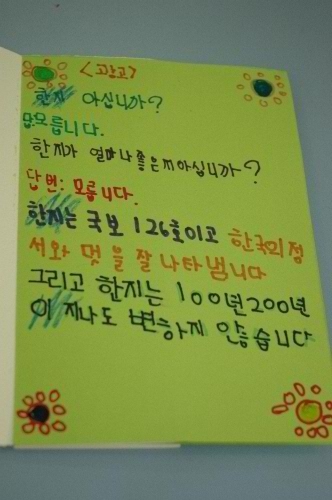 <광고>
한지 아십니까?
답:모릅니다.
한지가 얼마나좋은지아십니까?
답변: 모릅니다.
한지는 국보 126호이고 한국의정
서와 멋을 잘 나타냅니다
그리고 한지는 100년200년
이 지나도 변하지 않습니다